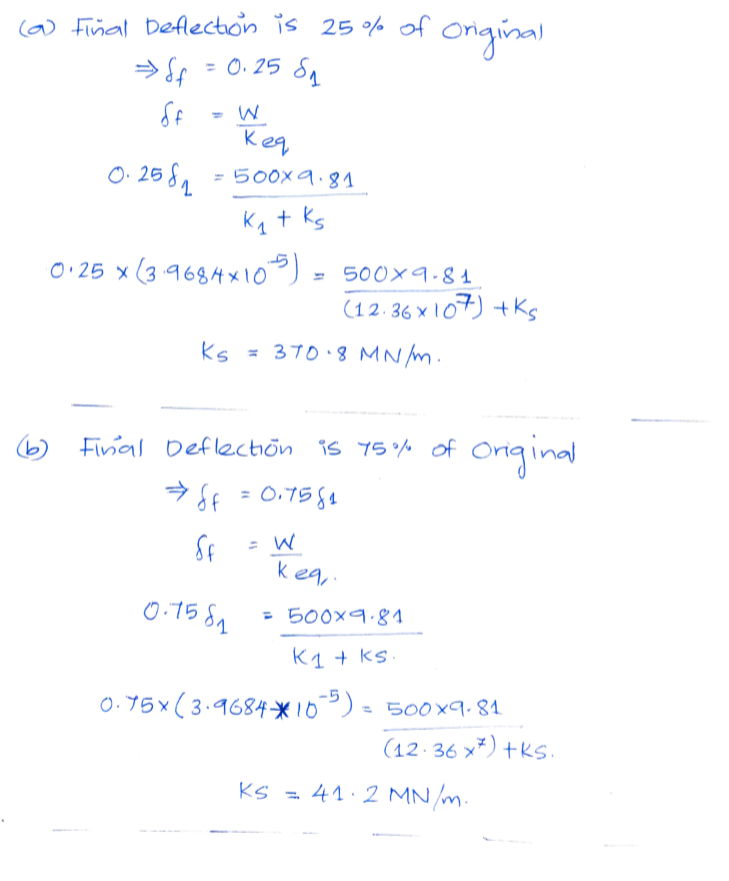 (a) Final Deflection is 25% of Original
⇒ δf = 0.25 δ1
δf = W
Keq
0.25 δ1 = 500x9.81
K1 + Ks
0.25 x (3.9684x10^-5) = 500x9.81
(12.36x10^7) + Ks
Ks = 370.8 MN/m.
(b) Final Deflection is 75% of Original
⇒ δf = 0.75 δ1
δf = W
keq.
0.75 δ1 = 500x9.81
K1 + Ks.
0.75x(3.9684x10^-5) = 500x9.81
(12.36x^7) + Ks.
Ks = 41.2 MN/m.